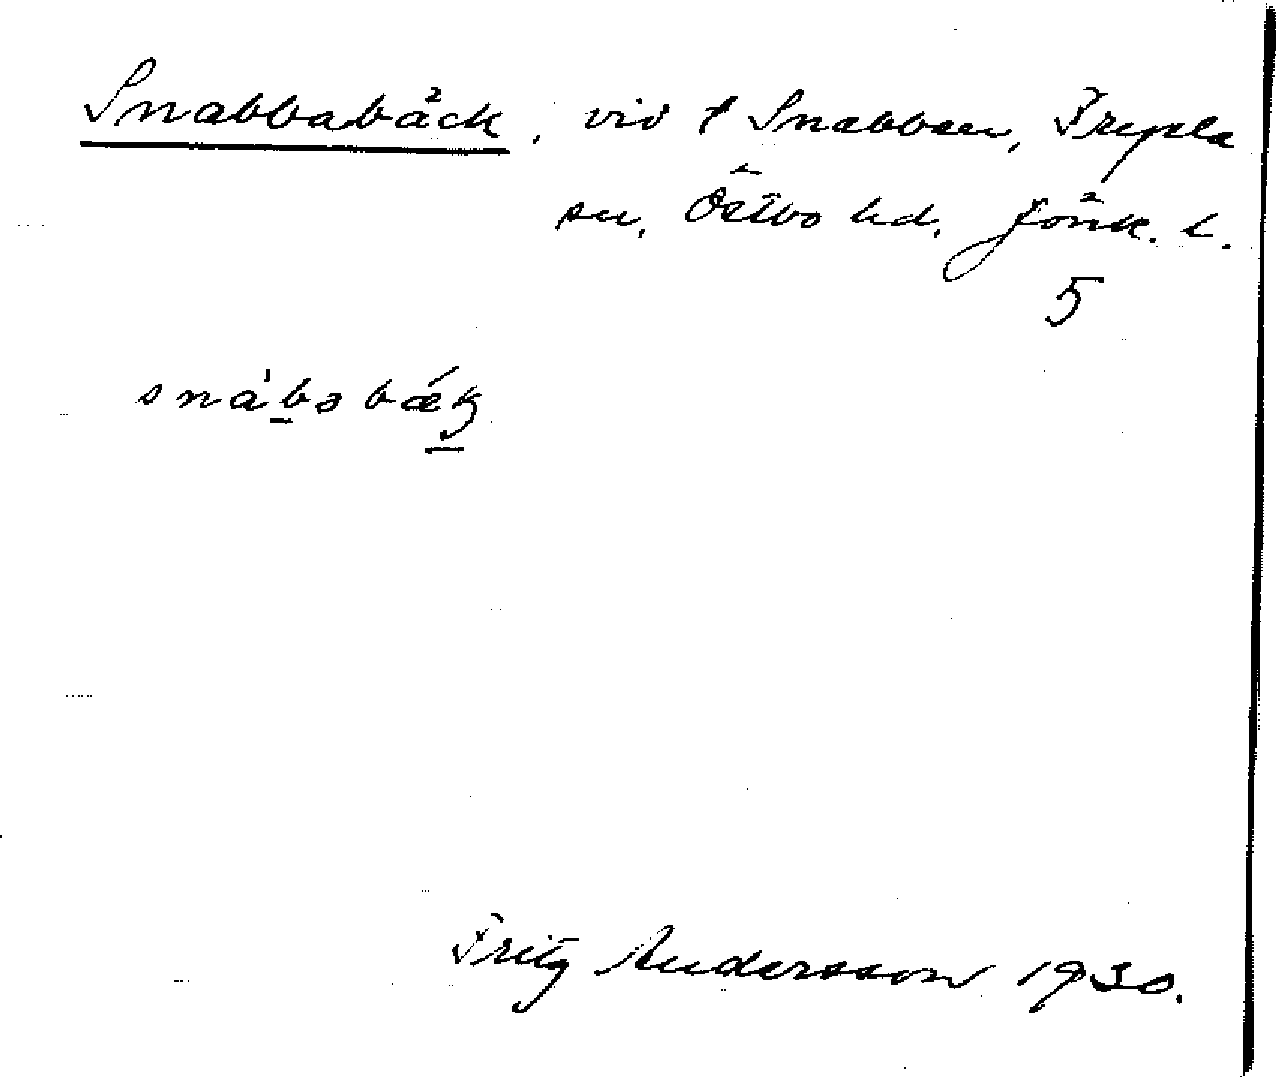 Snabbabäck, vid t Snabben, Tryele
sn, Östbo hd, Jönk. l.
5
snábəbǽk
Fritz Andersson 1930.